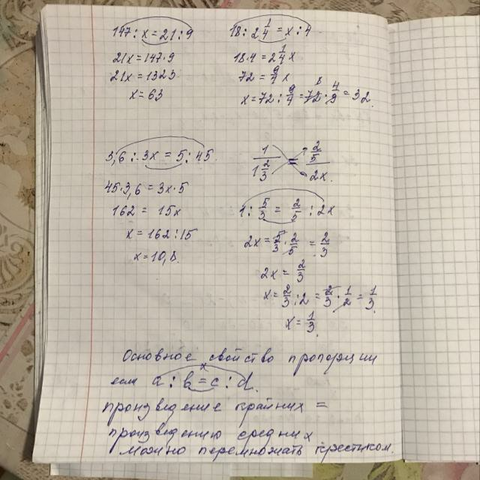 147 : x = 21 : 9
21x = 147·9
21x = 1323
x = 63
18 : 2 1/4 = x : 4
18·4 = 2 1/4 x
72 = 9/4 x
x = 72 : 9/4 = 72 · 4/9 = 32
3,6 : 3x = 5 : 45
45·3,6 = 3x·5
162 = 15x
x = 162 : 15
x = 10,8
1 / 1 2/3 = 2/5 / 2x
1 : 5/3 = 2/5 : 2x
2x = 5/3 · 2/5 = 2/3
2x = 2/3
x = 2/3 : 2 = 2/3 · 1/2 = 1/3
x = 1/3
Основное свойство пропорции
если a : b = c : d
произведение крайних =
произведению средних
можно перемножать крестиком.